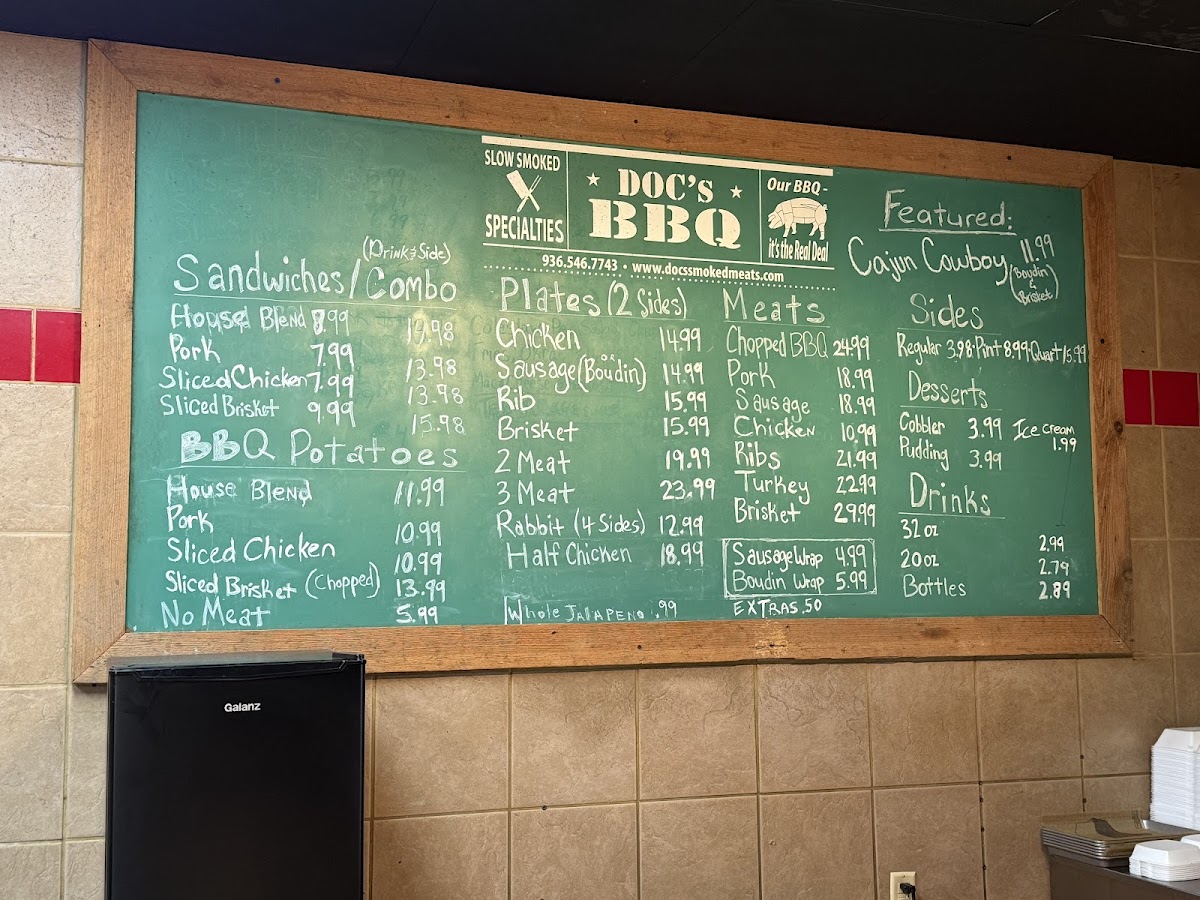 SLOW SMOKED
SPECIALTIES
DOC'S
BBQ
Our BBQ -
it's the Real Deal
936.546.7743 • www.docssmokedmeats.com
(Drink & Side)
Sandwiches/Combo
House Blend 8.99
Pork 7.99 13.98
Sliced Chicken 7.99 13.98
Sliced Brisket 9.99 15.98
BBQ Potatoes
House Blend 11.99
Pork 10.99
Sliced Chicken 10.99
Sliced Brisket (Chopped) 13.99
No Meat 5.99
Plates (2 Sides)
Chicken 14.99
Sausage (Boudin) 14.99
Rib 15.99
Brisket 15.99
2 Meat 19.99
3 Meat 23.99
Rabbit (4 Sides) 12.99
Half Chicken 18.99
Whole JALAPENO .99
Meats
Chopped BBQ 24.99
Pork 18.99
Sausage 18.99
Chicken 10.99
Ribs 21.99
Turkey 22.99
Brisket 29.99
Sausage Wrap 4.99
Boudin Wrap 5.99
EXTRAS .50
Featured:
Cajun Cowboy 11.99
(Boudin
&
Brisket)
Sides
Regular 3.98 • Pint 8.99 • Quart 15.99
Desserts
Cobbler 3.99 Ice cream
Pudding 3.99 1.99
Drinks
32 oz 2.99
20 oz 2.79
Bottles 2.89
Galanz